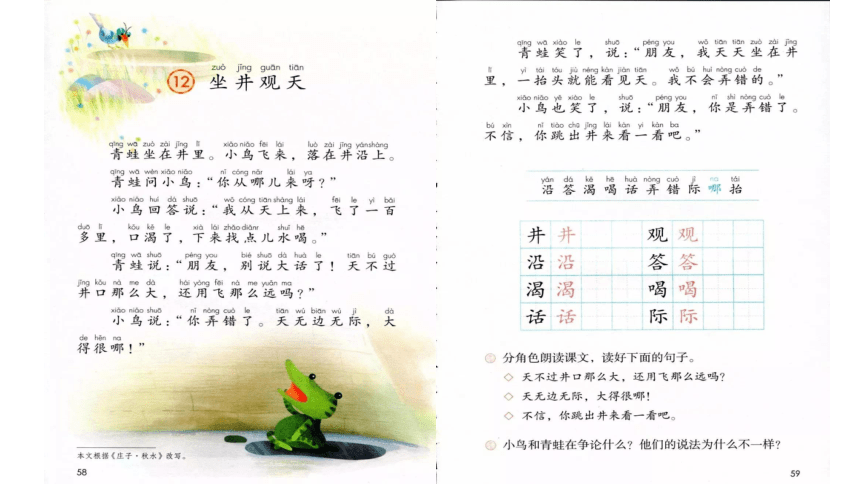 zuò jǐng guān tiān
12 坐井观天
qīng wā zuò zài jǐng lǐ xiǎo niǎo fēi lái luò zài jǐng yánshàng
青蛙坐在井里。小鸟飞来，落在井沿上。
qīng wā wèn xiǎo niǎo nǐ cóng nǎr lái ya
青蛙问小鸟：“你从哪儿来呀？”
xiǎo niǎo huí dá shuō wǒ cóng tiān shàng lái fēi le yì bǎi
小鸟回答说：“我从天上来，飞了一百
duō lǐ kǒu kě le xià lái zhǎo diǎnr shuǐ hē
多里，口渴了，下来找点儿水喝。”
qīng wā shuō péng you bié shuō dà huà le tiān bú guò
青蛙说：“朋友，别说大话了！天不过
jǐng kǒu nà me dà hái yòng fēi nà me yuǎn ma
井口那么大，还用飞那么远吗？”
xiǎo niǎo shuō nǐ nòng cuò le tiān wú biān wú jì dà
小鸟说：“你弄错了。天无边无际，大
de hěn na
得很哪！”
本文根据《庄子·秋水》改写。
58
qīng wā xiào le shuō péng you wǒ tiān tiān zuò zài jǐng
青蛙笑了，说：“朋友，我天天坐在井
lǐ yì tái tóu jiù néng kàn jiàn tiān wǒ bú huì nòng cuò de
里，一抬头就能看见天。我不会弄错的。”
xiǎo niǎo yě xiào le shuō péng you nǐ shì nòng cuò le
小鸟也笑了，说：“朋友，你是弄错了。
bú xìn nǐ tiào chū jǐng lái kàn yi kàn ba
不信，你跳出井来看一看吧。”
yán dá kě hē huà nòng cuò jì na tái
沿答渴喝话弄错际哪抬
井 井 观 观
沿 沿 答 答
渴 渴 喝 喝
话 话 际 际
分角色朗读课文，读好下面的句子。
◇ 天不过井口那么大，还用飞那么远吗？
◇ 天无边无际，大得很哪！
◇ 不信，你跳出井来看一看吧。
小鸟和青蛙在争论什么？他们的说法为什么不一样？
59